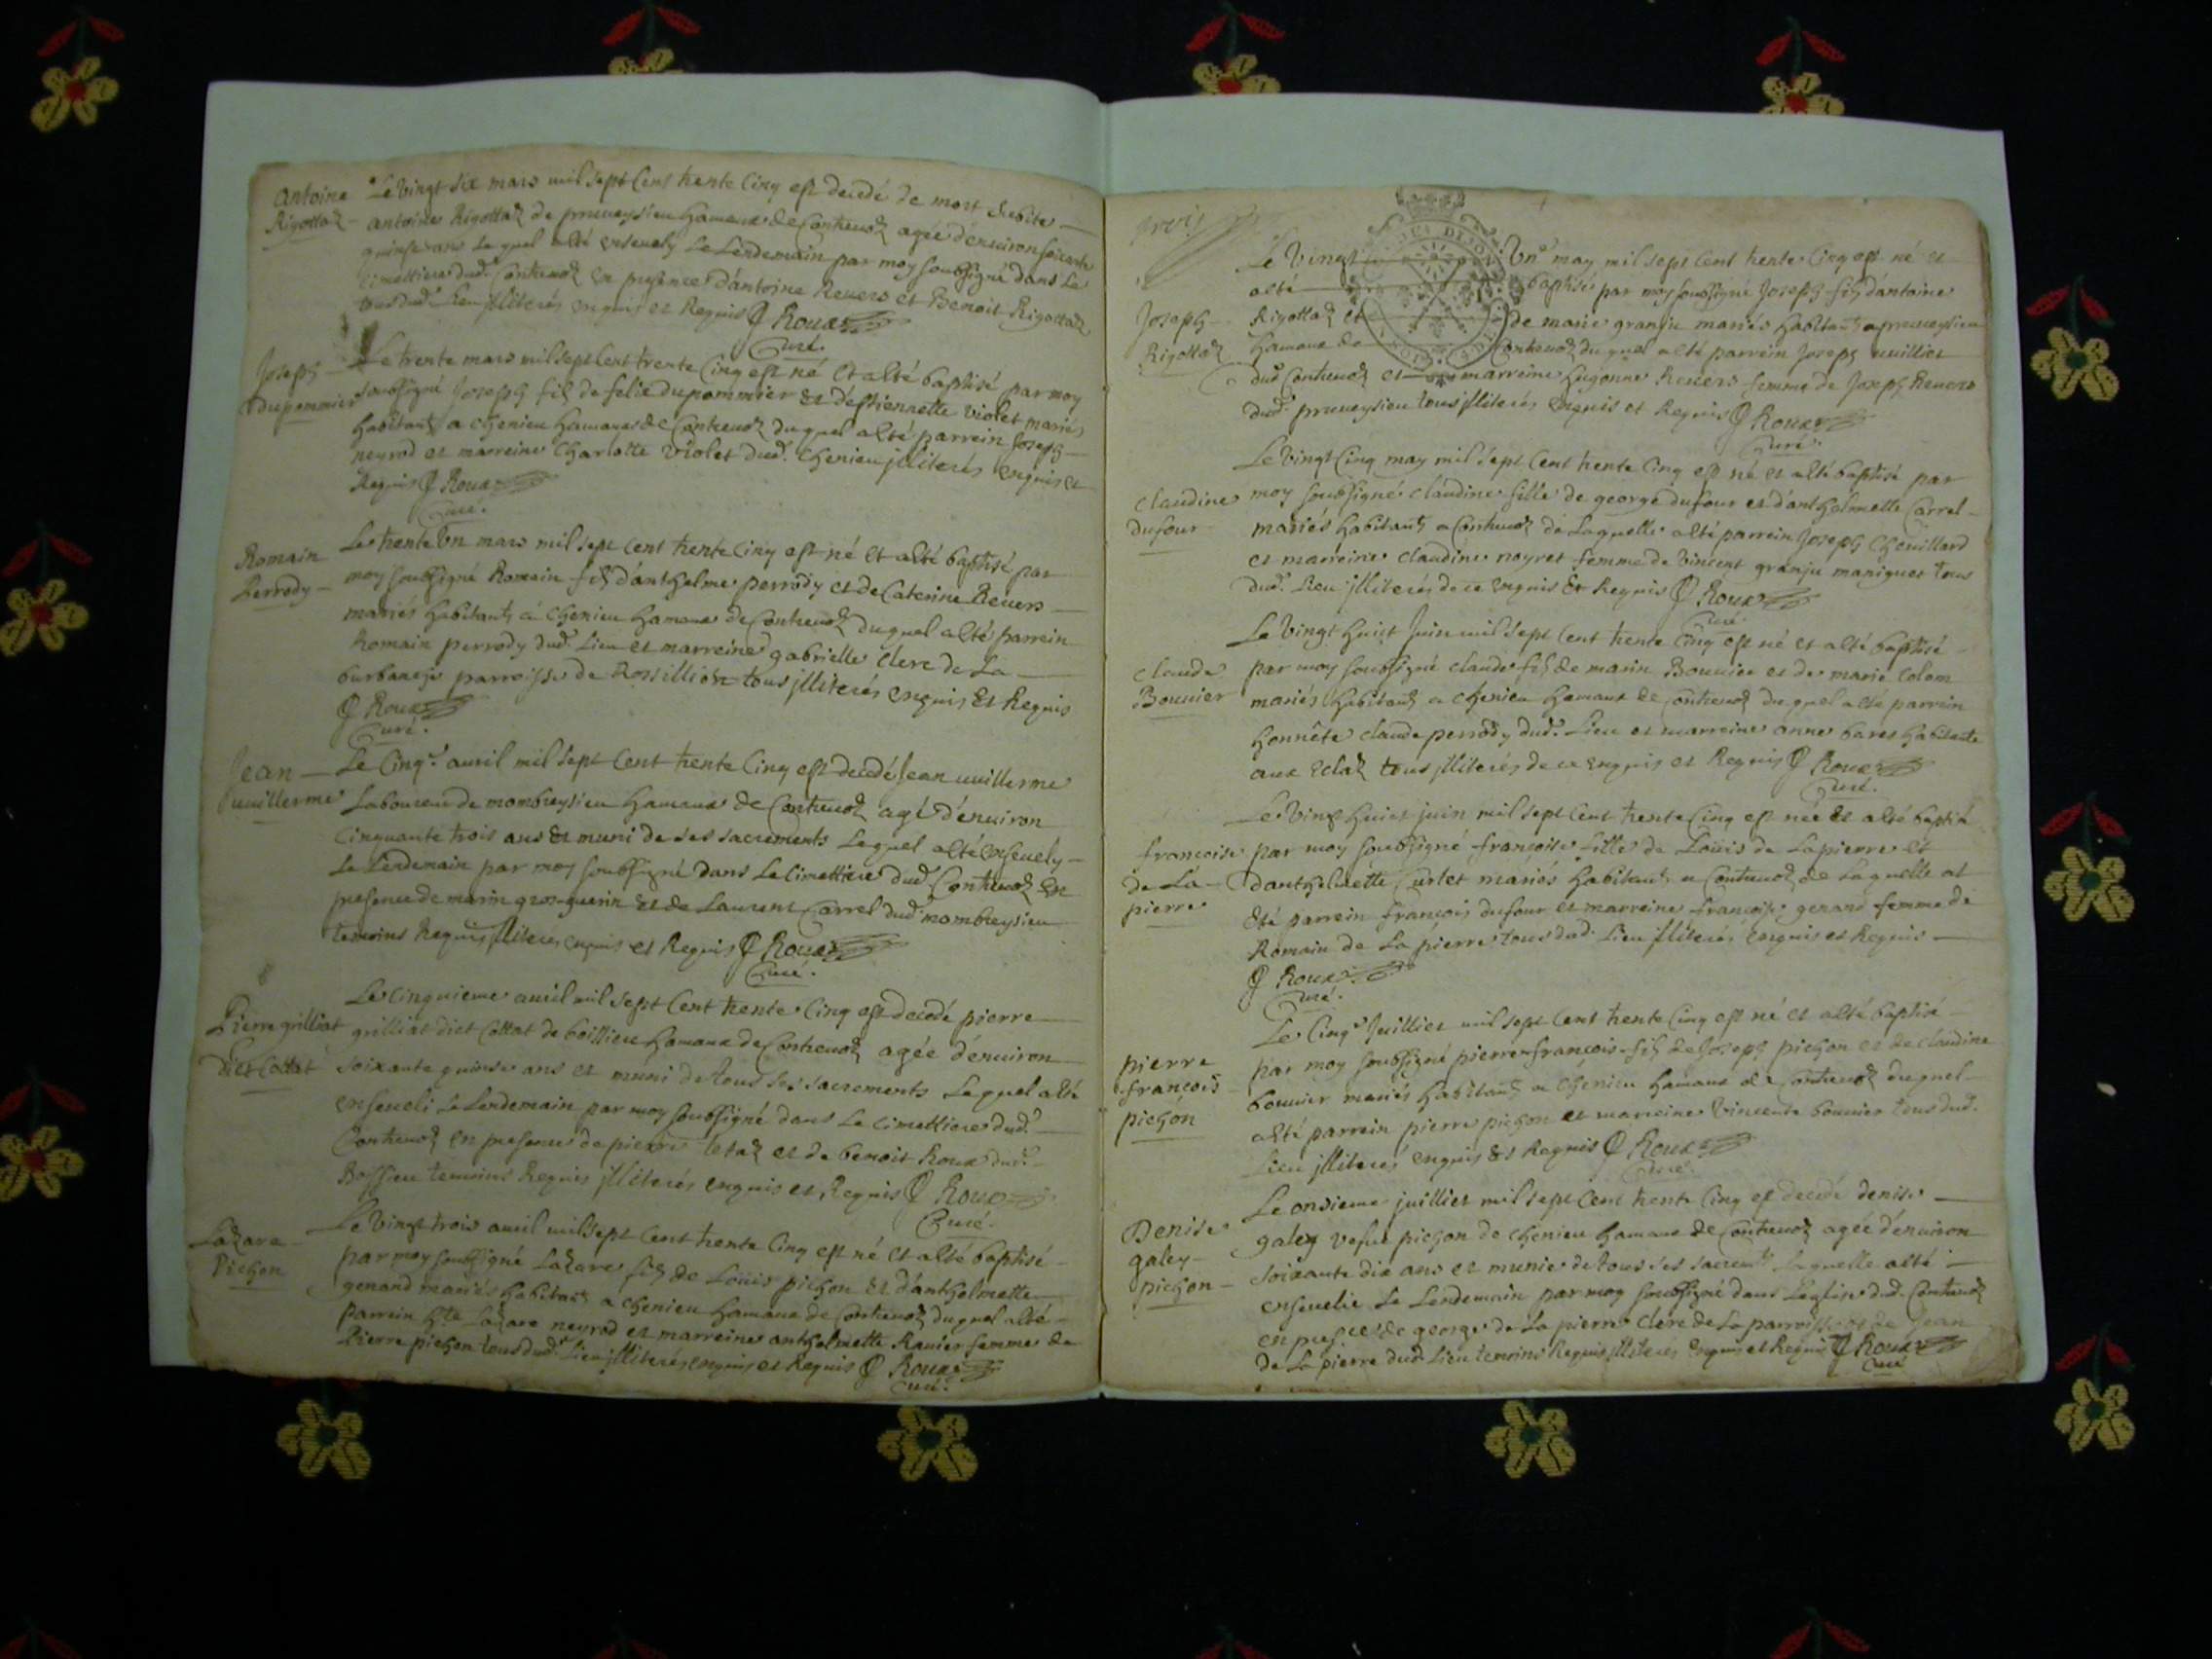 Antoine
Rigottaz
Le vingt six mars mil sept cent trente cinq est decedé de mort subite
antoine Rigottaz de prueysieu hameaux de Contreuoz agée d'enuiron soixante
quinse ans lequel a été enseuely Le Lendemain par moy soubsigné dans Le
cimettiere dud. Contreuoz en presence d'antoine Reuers et Benoit Rigottaz
tous dud. Lieu jlliterés enquis et Requis Roux
Curé.
Joseph
dupommier
Le trente mars mil sept cent trente cinq est né et a été baptisé par moy
soubsigné Joseph fils de felix dupommier et d'estiennette violet mariés
habitants a chenieu hameaux de Contreuoz duquel a été parrein Joseph
neyrod et marreine Charlotte violet dud. chenieu jlliterés enquis et
Requis Roux
Curé.
Romain
Perrody
Le trente un mars mil sept cent trente cinq est né et a été baptisé par
moy soubsigné Romain fils d'anthelme perrody et de Caterine Reuers
mariés habitants a chenieu hameaux de Contreuoz duquel a été parrein
Romain perrody dud. Lieu et marreine gabrielle clerc de La
burbanche parroisse de Rossillion tous jlliterés enquis et Requis
Roux
Curé.
Jean
uuillerme
Le Cinq. auril mil sept cent trente cinq est decedé Jean uuillerme
Laboureur de mombreysieu hameaux de Contreuoz agé d'enuiron
cinquante trois ans et muni de ses sacrements Lequel a été enseuely
Le Lendemain par moy soubsigné dans Le cimettiere dud. Contreuoz en
presence de marin gros-guerin et de Laurent Carrel dud. mombreysieu
temoins Requis jlliterés enquis et Requis Roux
Curé.
Pierre grilliat
dict Cottat
Le cinquieme auril mil sept cent trente cinq est decedé pierre
grilliat dict Cottat de boissieu hameaux de Contreuoz agée d'enuiron
soixante quinse ans et muni de tous ses sacrements Lequel a été
enseueli Le Lendemain par moy soubsigné dans Le cimettiere dud.
Contreuoz en presence de pierre tetaz et de benoit Roux dud.
Bossieu temoins Requis jlliterés enquis et Requis Roux
Curé.
Lazare
Pichon
Le vingt trois auril mil sept cent trente cinq est né et a été baptisé
par moy soubsigné Lazare fils de Loüis pichon et d'anthelmette
genand mariés habitants a chenieu hameaux de Contreuoz duquel a été
parrein h.te Lazare neyrod et marreine anthelmette Rauier femme de
Pierre pichon tous dud. Lieu jlliterés enquis et Requis Roux
Curé.
trois
Joseph
Rigottaz
Le vingt un may mil sept cent trente cinq est né et
a été baptisé par moy soubsigné Joseph fils d'antoine
Rigottaz et de marie granju mariés habitants a prueysieu
hameaux de Contreuoz duquel a été parrein Joseph uuilliet
dud. Contreuoz et marreine hugonne Reuers femme de Joseph Reuers
dud. prueysieu tous jlliterés enquis et Requis Roux
Curé.
Claudine
dufour
Le vingt Cinq may mil sept cent trente cinq est né et a été baptisé par
moy soubsigné claudine fille de george dufour et d'anthelmette Carrel
mariés habitants a Contreuoz de Laquelle a été parrein Joseph Cheuillard
et marreine claudine noyret femme de vincent granju maniguet tous
dud. Lieu jlliterés de ce enquis et Requis Roux
Curé.
claude
Bouuier
Le vingt huict Juin mil sept cent trente cinq est né et a été baptisé
par moy soubsigné claude fils de marin Bouuier et de marie Colom
mariés habitants a chenieu hameaux de Contreuoz duquel a été parrein
honnête claude perrody dud. Lieu et marreine anne baret habitante
aux Eclaz tous jlliterés de ce enquis et Requis Roux
Curé.
francoise
de La
pierre
Le vingt huict juin mil sept cent trente cinq est née et a été baptisé
par moy soubsigné françoise fille de Loüis de Lapierre et
d'anthelmette Curtet mariés habitants a Contreuoz de Laquelle at
été parrein françois dufour et marreine françoise genand femme de
Romain de La pierre tous dud. Lieu jlliterés enquis et Requis
Roux
Curé.
pierre
françois
pichon
Le Cinq. Juilliet mil sept cent trente cinq est né et a été baptisé
par moy soubsigné pierre françois fils de Joseph pichon et de claudine
bouuier mariés habitants a chenieu hameaux de Contreuoz duquel
a été parrein pierre pichon et marreine vincente bouuier tous dud.
Lieu jlliterés enquis et Requis Roux
Curé.
Denise
galey
pichon
Le onsieme juilliet mil sept cent trente cinq est decedé denise
galey vesue pichon de chenieu hameaux de Contreuoz agée d'enuiron
soixante dix ans et munie de tous ses sacrents Laquelle a été
enseuelie Le Lendemain par moy soubsigné dans L'eglise dud. Contreuoz
en prefce de george de La pierre clerc de La parroisse et de Jean
de La pierre dud. Lieu temoins Requis jlliterés enquis et Requis Roux
Curé